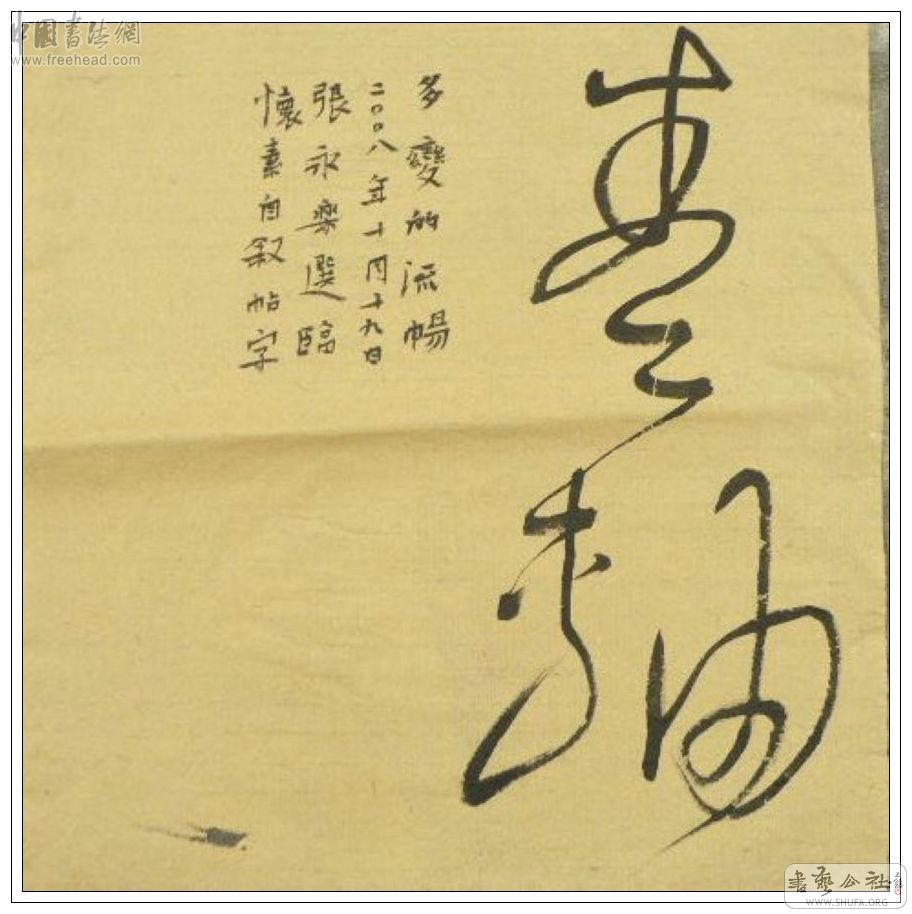 中國書法網
www.freehead.com
多變的流暢
二〇〇八年十月十九日
張永樂選臨
懷素自叙帖字
書藝公社
WWW.SHUFA.ORG